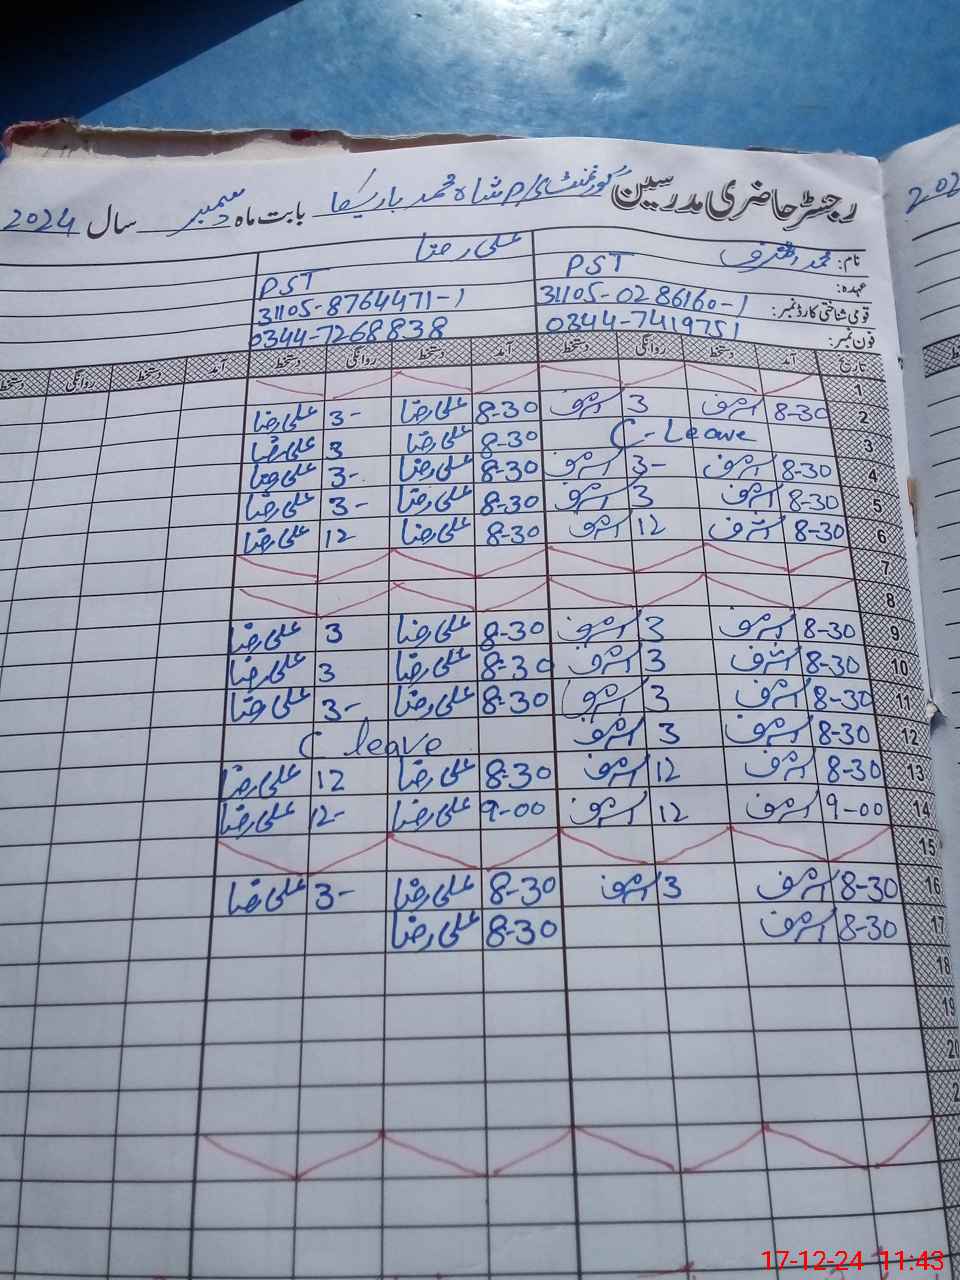 رجسٹر حاضری مدرسین گورنمنٹ شاہ محمد بابت ماہ دسمبر سال 2024
202
نام: محمد اشرف علی رضا
عہدہ: PST PST
قومی شناختی کارڈ نمبر: 31105-0286160-1 31105-8764471-1
فون نمبر: 0344-7419751 0344-7268838
تاریخ آمد دستخط روانگی دستخط آمد دستخط روانگی دستخط آمد دستخط روانگی دستخط
1
2 8-30 اشرف 3 اشرف 8-30 علی رضا 3- علی رضا
3 C-Leave 8-30 علی رضا 3 علی رضا
4 8-30 اشرف 3- اشرف 8-30 علی رضا 3- علی رضا
5 8-30 اشرف 3 اشرف 8-30 علی رضا 3- علی رضا
6 8-30 اشرف 12 اشرف 8-30 علی رضا 12 علی رضا
7
8
9 8-30 اشرف 3 اشرف 8-30 علی رضا 3 علی رضا
10 8-30 اشرف 3 اشرف 8-30 علی رضا 3 علی رضا
11 8-30 اشرف 3 اشرف 8-30 علی رضا 3- علی رضا
12 8-30 اشرف 3 اشرف C leave
13 8-30 اشرف 12 اشرف 8-30 علی رضا 12 علی رضا
14 9-00 اشرف 12 اشرف 9-00 علی رضا 12- علی رضا
15
16 8-30 اشرف 3 اشرف 8-30 علی رضا 3- علی رضا
17 8-30 اشرف 8-30 علی رضا
18
19
20
17-12-24 11:43